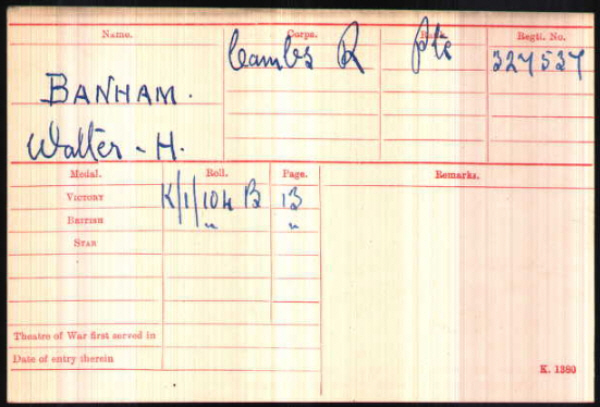 Name. Corps. Rank. Regtl. No.
BANHAM. Cambs R Pte 327537
Walter - H.
Medal. Roll. Page. Remarks.
VICTORY K/1/104 B 13
BRITISH " "
STAR
Theatre of War first served in
Date of entry therein
K. 1380